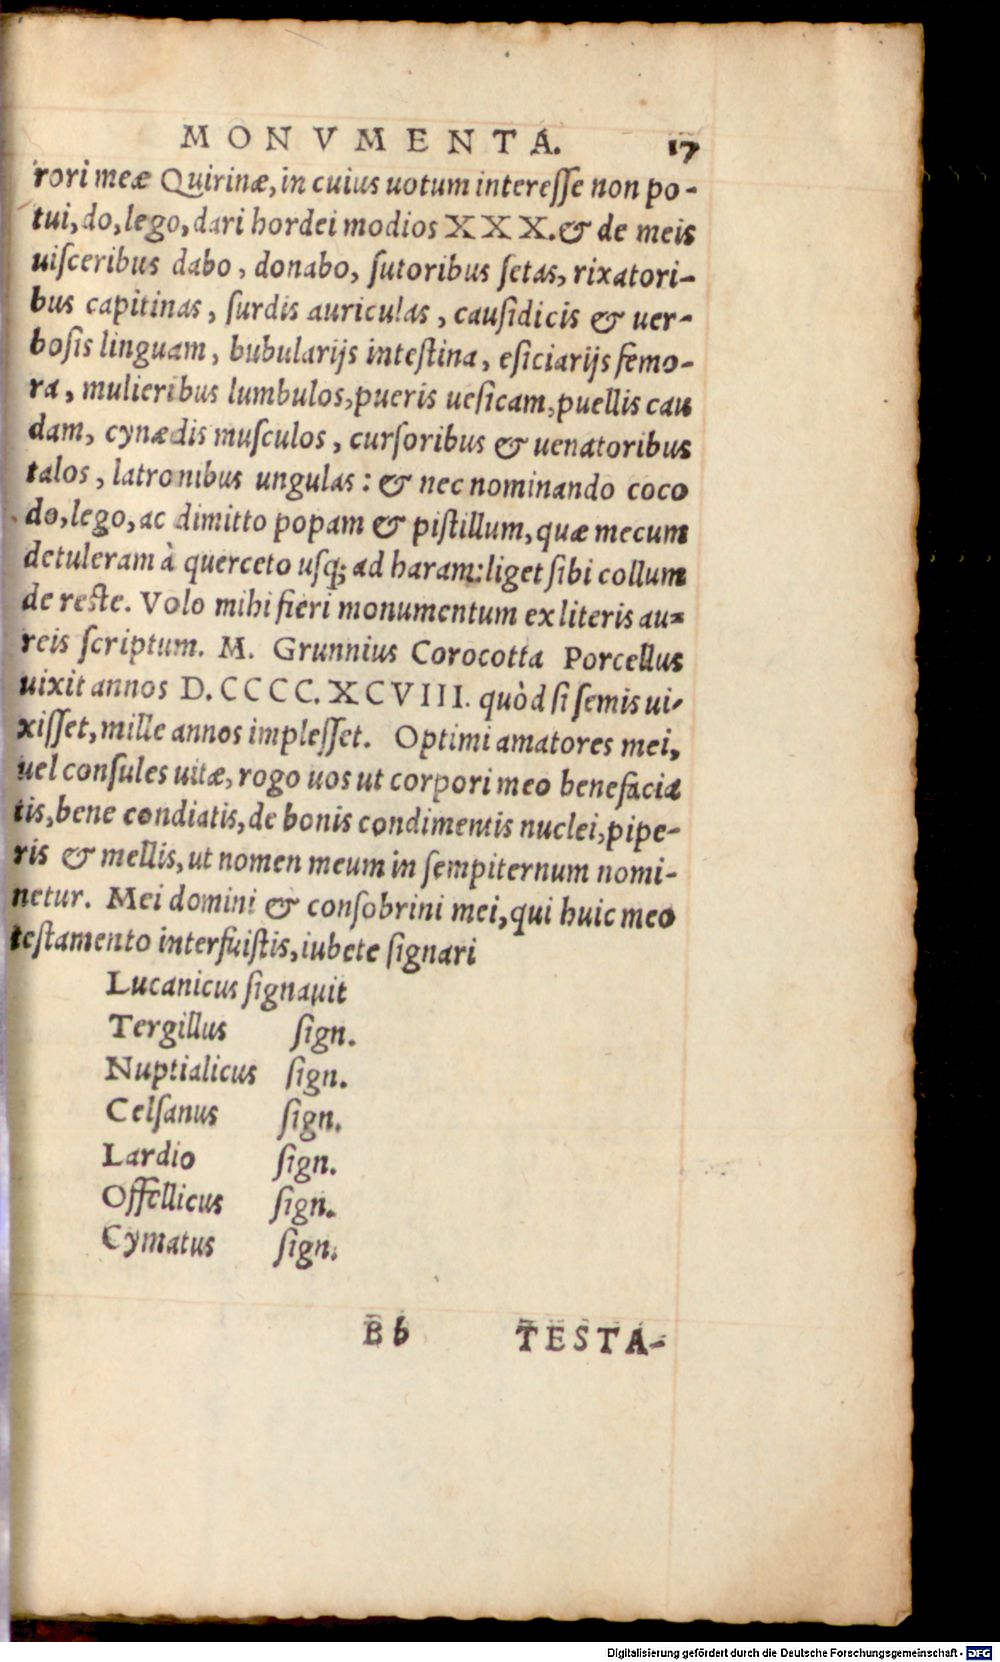 MONVMENTA. 17
rori meæ Quirinæ, in cuius uotum interesse non po-
tui, do, lego, dari hordei modios XXX. & de meis
uisceribus dabo, donabo, sutoribus setas, rixatori-
bus capitinas, surdis auriculas, causidicis & uer-
bosis linguam, bubularijs intestina, esiciarijs femo-
ra, mulieribus lumbulos, pueris uesicam, puellis cau
dam, cynædis musculos, cursoribus & uenatoribus
talos, latronibus ungulas: & nec nominando coco
do, lego, ac dimitto popam & pistillum, quæ mecum
detuleram à querceto usq; ad haram: liget sibi collum
de reste. Volo mihi fieri monumentum ex literis au-
reis scriptum. M. Grunnius Corocotta Porcellus
uixit annos D.CCCC.XCVIII. quòd si semis ui-
xisset, mille annos implesset. Optimi amatores mei,
uel consules uitæ, rogo uos ut corpori meo benefacia
tis, bene condiatis, de bonis condimentis nuclei, pipe-
ris & mellis, ut nomen meum in sempiternum nomi-
netur. Mei domini & consobrini mei, qui huic meo
testamento interfuistis, iubete signari
Lucanicus signauit
Tergillus sign.
Nuptialicus sign.
Celsanus sign.
Lardio sign.
Offellicus sign.
Cymatus sign.
Bb TESTA-
Digitalisierung gefördert durch die Deutsche Forschungsgemeinschaft - DFG